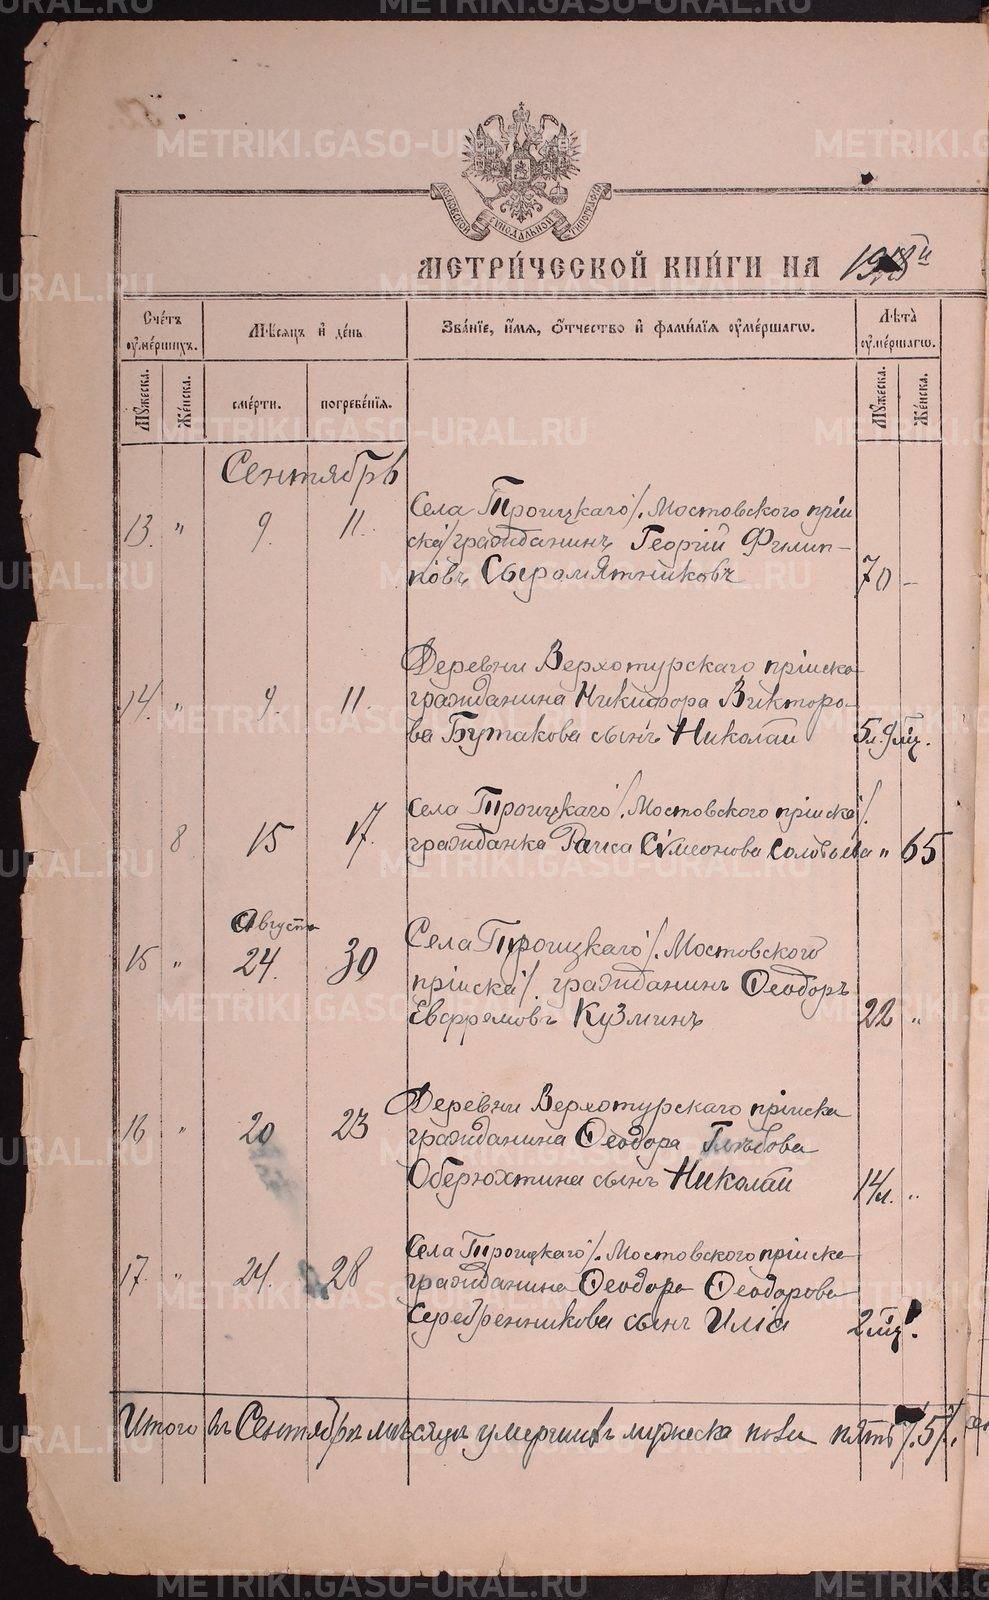 МОСКОВСКОЙ СУНОДАЛЬНОЙ ТИПОГРАФІИ
МЕТРИ́ЧЕСКОЙ КНИ́ГИ НА 1918 й
Сче́тъ ѹме́ршихъ.
Мѣ́сяцъ и҆ де́нь
Зва́нїе, и҆́мя, о҆́тчество и҆ фами́лїя ѹме́ршагѡ.
Лѣта̀ ѹме́ршагѡ.
Мꙋ́жеска.
Же́нска.
сме́рти.
погребе́нїя.
Мꙋ́жеска.
Же́нска.
Сентябрь
13. " 9. 11. Села Троицкаго /. Мостовского прiи
ска/ гражданинъ Георгiй Филип-
повъ Сыромятниковъ 70 -
14. " 9. 11. Деревни Верхотурскаго прiиска
гражданина Никифора Викторо-
ва Бутакова сынъ Николай 5 л. 9 мц.
8 15 17. Села Троицкаго /. Мостовского прiиска/.
гражданка Раиса Сѵмеонова Соловьева " 65
Августъ
15 " 24. 30 Села Троицкаго /. Мостовского
прiиска/ гражданинъ Ѳеодоръ
Евфремовъ Кузминъ 22 "
16 " 20 23 Деревни Верхотурскаго прiиска
гражданина Ѳеодора Глѣбова
Оберюхтина сынъ Николай 14 л. "
17. " 24. 28 Села Троицкаго /. Мостовского прiиска
гражданина Ѳеодора Ѳеодорова
Серебренникова сынъ Илiя 2 мц.
Итого въ Сентябрѣ мѣсяцѣ умершихъ мужеска пола пять /.5/.
METRIKI.GASO-URAL.RU